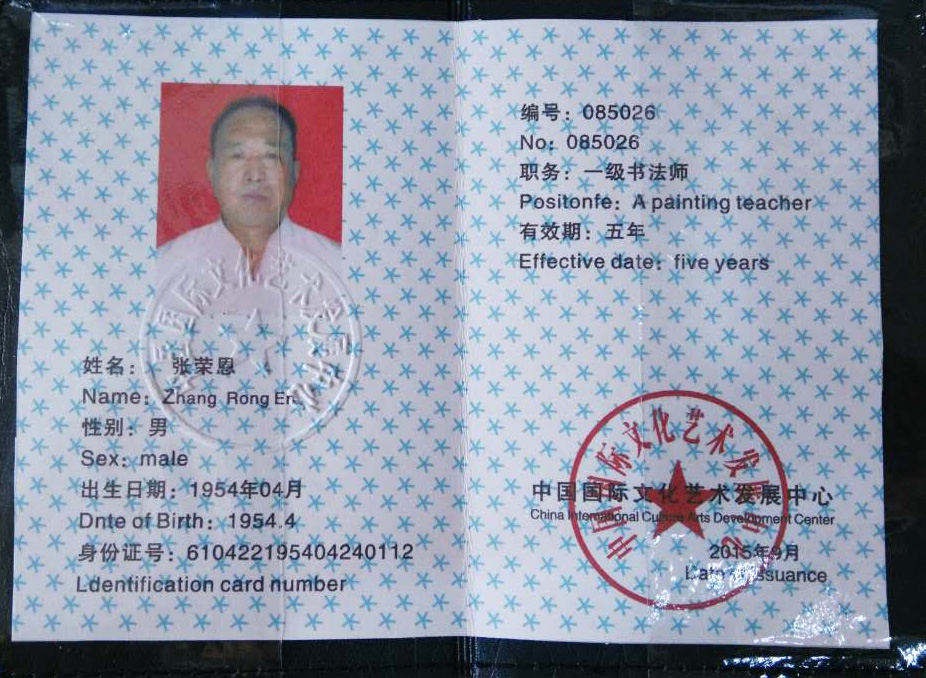 姓名：张荣恩
Name：Zhang Rong En
性别：男
Sex：male
出生日期：1954年04月
Dnte of Birth：1954.4
身份证号：610422195404240112
Ldentification card number
中国国际文化艺术发展中心
编号：085026
No：085026
职务：一级书法师
Positonfe：A painting teacher
有效期：五年
Effective date：five years
中国国际文化艺术发展中心
中国国际文化艺术发展中心
China International Culture Arts Development Center
2015年9月
Date of issuance